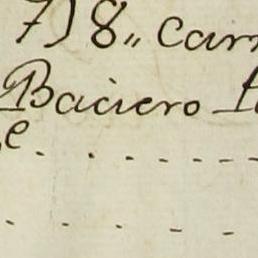 7) 8„ Carr
Baciero
e